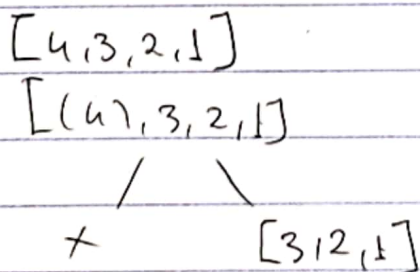 [4,3,2,1]
[(4),3,2,1]
x [3,2,1]